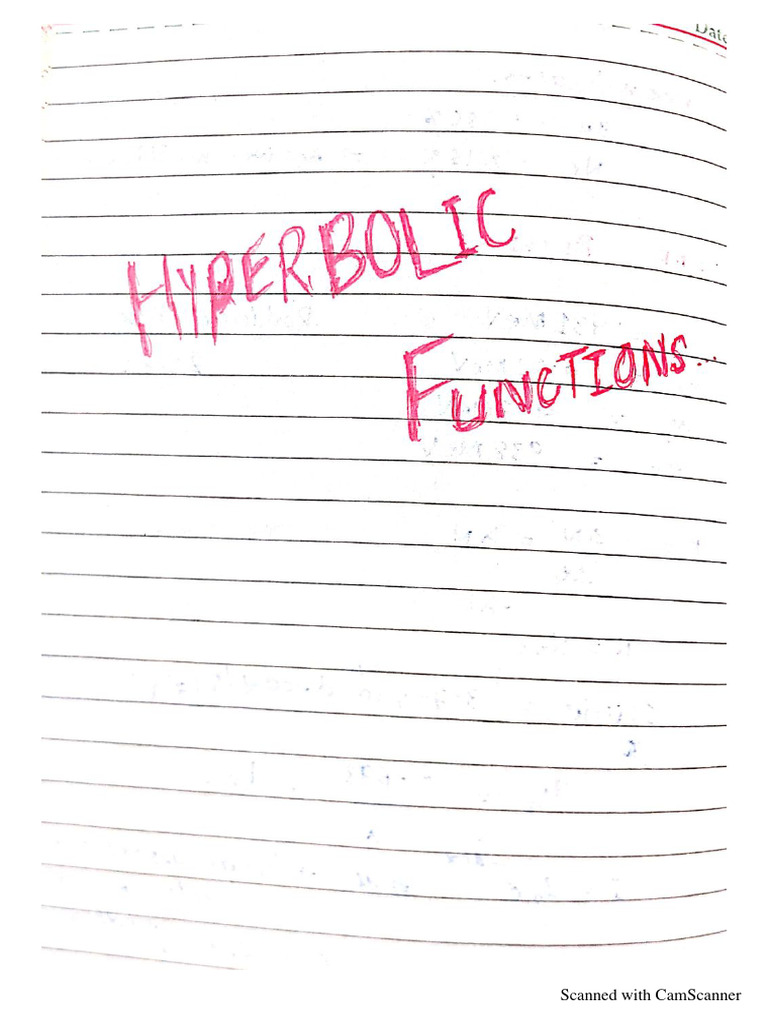 Date
HYPERBOLIC
FUNCTIONS...
Scanned with CamScanner